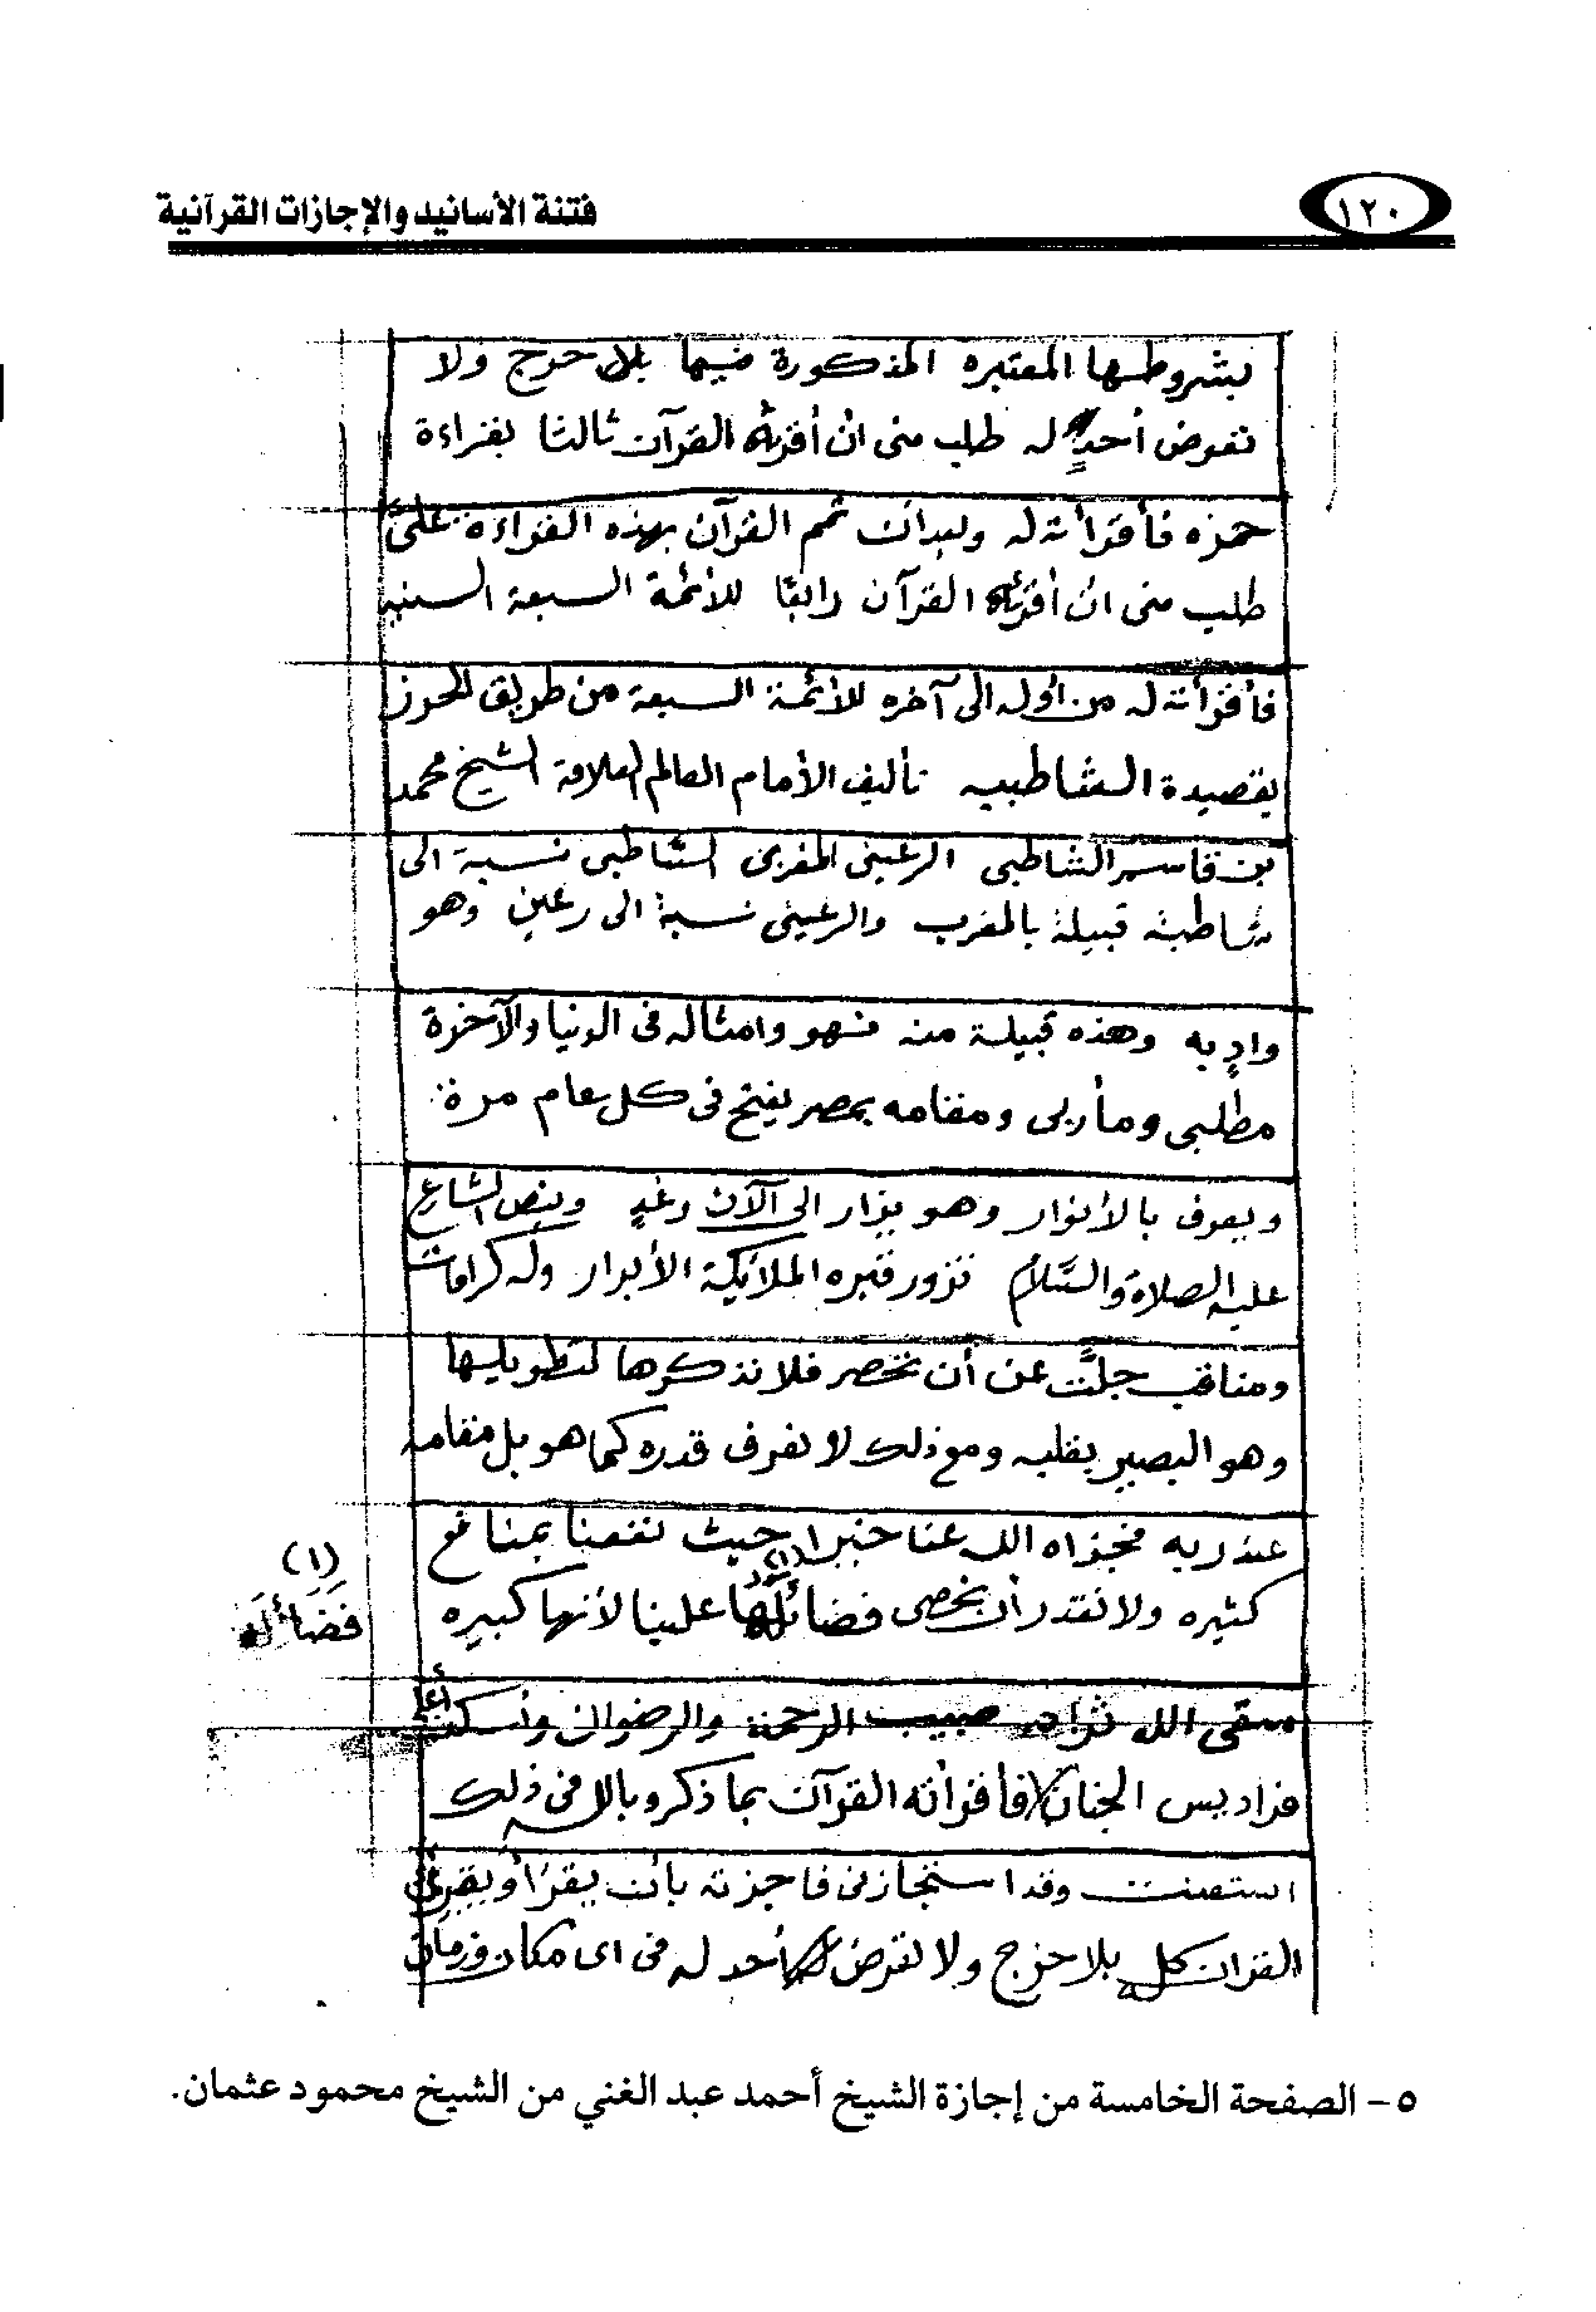 ١٢٠
فتنة الأسانيد والإجازات القرآنية
بشروطها المعتبره المذكورة فيها بلا حرج ولا
تعرض أحدٍ له طلب منى ان أقرئه القرآن ثالثا بقراءة
حمزه فأقرأته له وبعد أن تمم القرآن بهذه القراءة علىَّ
طلب منى ان أقرئه القرآن رابعًا للأئمة السبعة السنيه
فأقرأته له من أوله الى آخره للأئمة السبعة من طريق الحرز
بقصيدة الشاطبيه تأليف الأمام العالم العلامة الشيخ محمد
بن قاسم الشاطبى الرعينى المغربى الشاطبى نسبة الى
شاطبة قبيلة بالمغرب والرعينى نسبة الى رعين وهو
وادٍ به وهذه قبيلة منه فهو وامثاله فى الدنيا والآخرة
مطلبى ومأربى ومقامه بمصر يفتح فى كل عام مرة
ويعرف بالأنوار وهو يزار الى الآن وغدٍ وبنص الشارع
عليه الصلاة والسَّلام تزور قبره الملائكة الأبرار وله كرامات
ومناقب جلَّت عن أن تحصر فلا نذكرها لتطويلها
وهو البصير بقلبه ومع ذلك لا نعرف قدره كما هو بل مقامه
عند ربه فجزاه الله عنا خيرا حيث نفعنا بمنافع
كثيره ولا نقدر أن نحصى فضائلها (١) علينا لأنها كبيره
(١)
فَضَائلَه
سقى الله ثراه صبيب الرحمة والرضوان وأسكنه أعلى
فراديس الجنان فأقرأته القرآن بما ذكر وبالله فى ذلك
استعنت وقد استجازنى فاجزته بأن يقرَأ ويقرِئ
القران كله بلا حرج ولا تعرض أحد له فى اى مكان وزمان
٥- الصفحة الخامسة من إجازة الشيخ أحمد عبد الغني من الشيخ محمود عثمان.